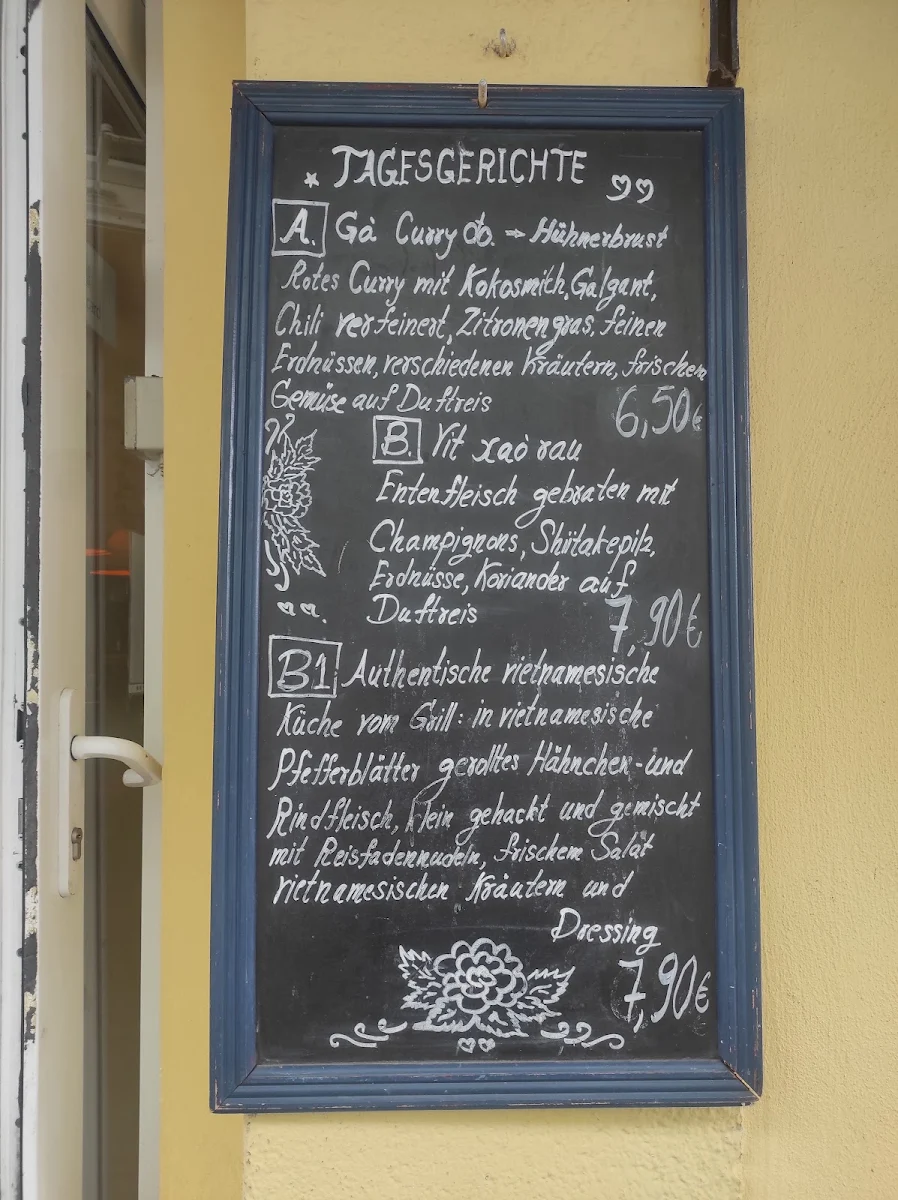 TAGESGERICHTE
A. Gà Curry đỏ. → Hühnerbrust
Rotes Curry mit Kokosmilch, Galgant,
Chili verfeinert, Zitronengras, feinen
Erdnüssen, verschiedenen Kräutern, frischem
Gemüse auf Duftreis
6,50€
B. Vit xaò rau
Entenfleisch gebraten mit
Champignons, Shiitakepilz,
Erdnüsse, Koriander auf
Duftreis
7,90€
B1 Authentische vietnamesische
Küche vom Grill: in vietnamesische
Pfefferblätter gerolltes Hähnchen- und
Rindfleisch, klein gehackt und gemischt
mit Reisfadennudeln, frischem Salat
vietnamesischen Kräutern und
Dressing
7,90€